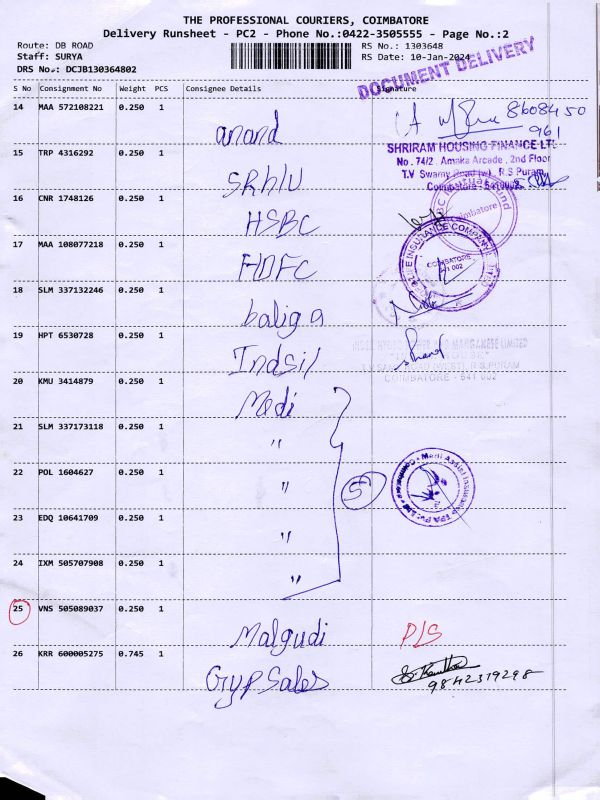 THE PROFESSIONAL COURIERS, COIMBATORE
Delivery Runsheet - PC2 - Phone No.:0422-3505555 - Page No.:2
Route: DB ROAD
RS No.: 1303648
Staff: SURYA
RS Date: 10-Jan-2024
DRS No.: DCJB130364802
DOCUMENT DELIVERY
S No Consignment No Weight PCS Consignee Details Signature
14 MAA 572108221 0.250 1
anand
8608450
961
SHRIRAM HOUSING FINANCE LTD
15 TRP 4316292 0.250 1
No. 74/2, Amnka Arcade, 2nd Floor
T.V Swamy Road (w), R.S Puram,
Coimbatore - 641002
SRhlU
16 CNR 1748126 0.250 1
HSBC
Coimbatore
17 MAA 108077218 0.250 1
HDFC
INSURANCE COMPANY LIMITED
COIMBATORE
641 002
18 SLM 337132246 0.250 1
baliga
19 HPT 6530728 0.250 1
Indsil
MANGANESE LIMITED
R.S.PURAM
COIMBATORE - 641 002
20 KMU 3414879 0.250 1
Medi
21 SLM 337173118 0.250 1
"
22 POL 1604627 0.250 1
"
5
Medi Assist Insurance TPA Pvt Ltd
23 EDQ 10641709 0.250 1
"
24 IXM 505707908 0.250 1
"
25 VNS 505089037 0.250 1
Malgudi
P/S
26 KRR 600005275 0.745 1
Gryp Sales
9842319298